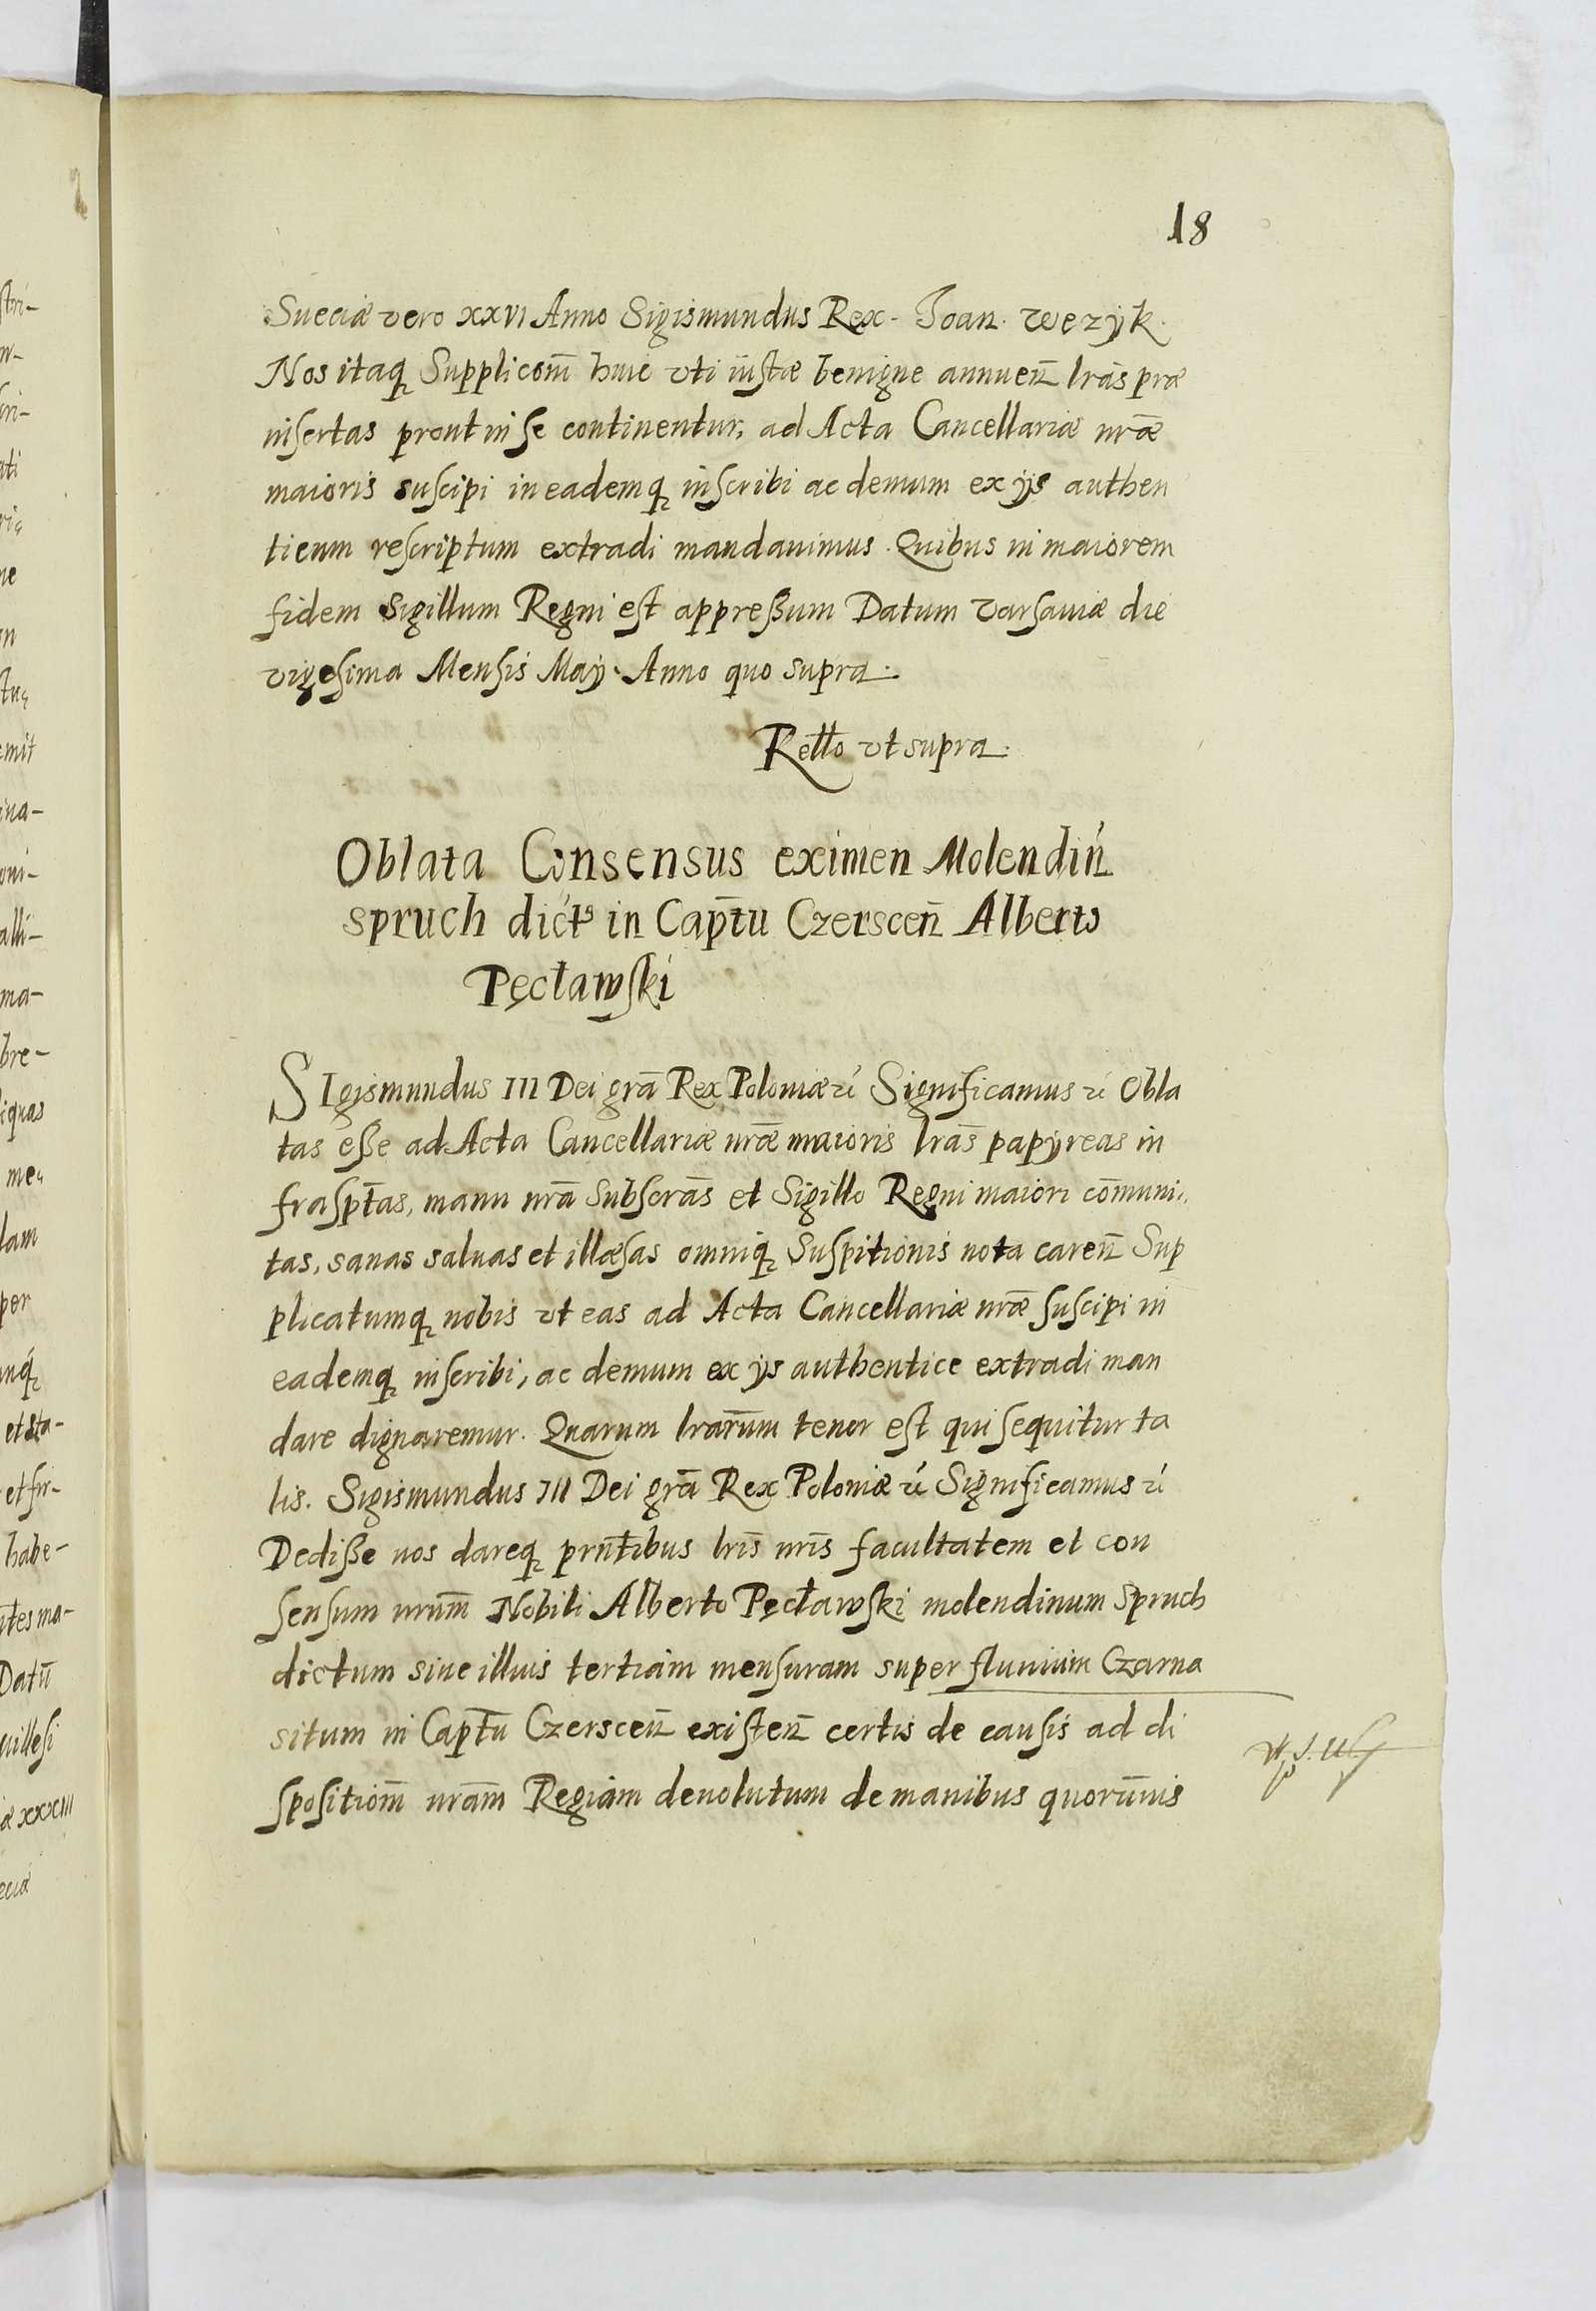 18
Sueciæ vero XXVI Anno Sigismundus Rex - Joan. Wezyk.
Nos itaq Supplicom̄ huic vti iustæ benigne annuen̄ lrās præ
insertas prout in se continentur, ad Acta Cancellariæ nrāe
maioris suscipi in eademq inscribi ac demum ex ijs authen
ticum rescriptum extradi mandauimus. Quibus in maiorem
fidem Sigillum Regni est appressum Datum Varsauiæ die
vigesima Mensis Maÿ. Anno quo supra.
Rello vt supra.
Oblata Consensus eximen Molendiń
spruch dictꝰ in Cap̄tu Czerscen̄ Alberto
Pęcławski
SIgismundus III Dei grā Rex Poloniæ ꝛć Significamus ꝛć Obla
tas esse ad Acta Cancellariæ nrāe maioris lrās papÿreas in
frasp̄tas, manu nrā Subscrās et Sigillo Regni maiori cōmuni
tas, sanas saluas et illæsas omniq Suspitionis nota caren̄ Sup
plicatumq nobis vt eas ad Acta Cancellariæ nrāe suscipi in
eademq inscribi, ac demum ex ijs authentice extradi man
dare dignaremur. Quarum lrarūm tenor est qui sequitur ta
lis. Sigismundus III Dei grā Rex Poloniæ ꝛć Significamus ꝛć
Dedisse nos dareq prn̄tibus lrīs nrīs facultatem et con
sensum nrūm Nobili Alberto Pęcławski molendinum Spruch
dictum siue illius tertiam mensuram super fluuium Czarna
situm in Cap̄tu Czerscen̄ existen̄ certis de causis ad di
spositiom̄ nram̄ Regiam deuolutum de manibus quorūuis